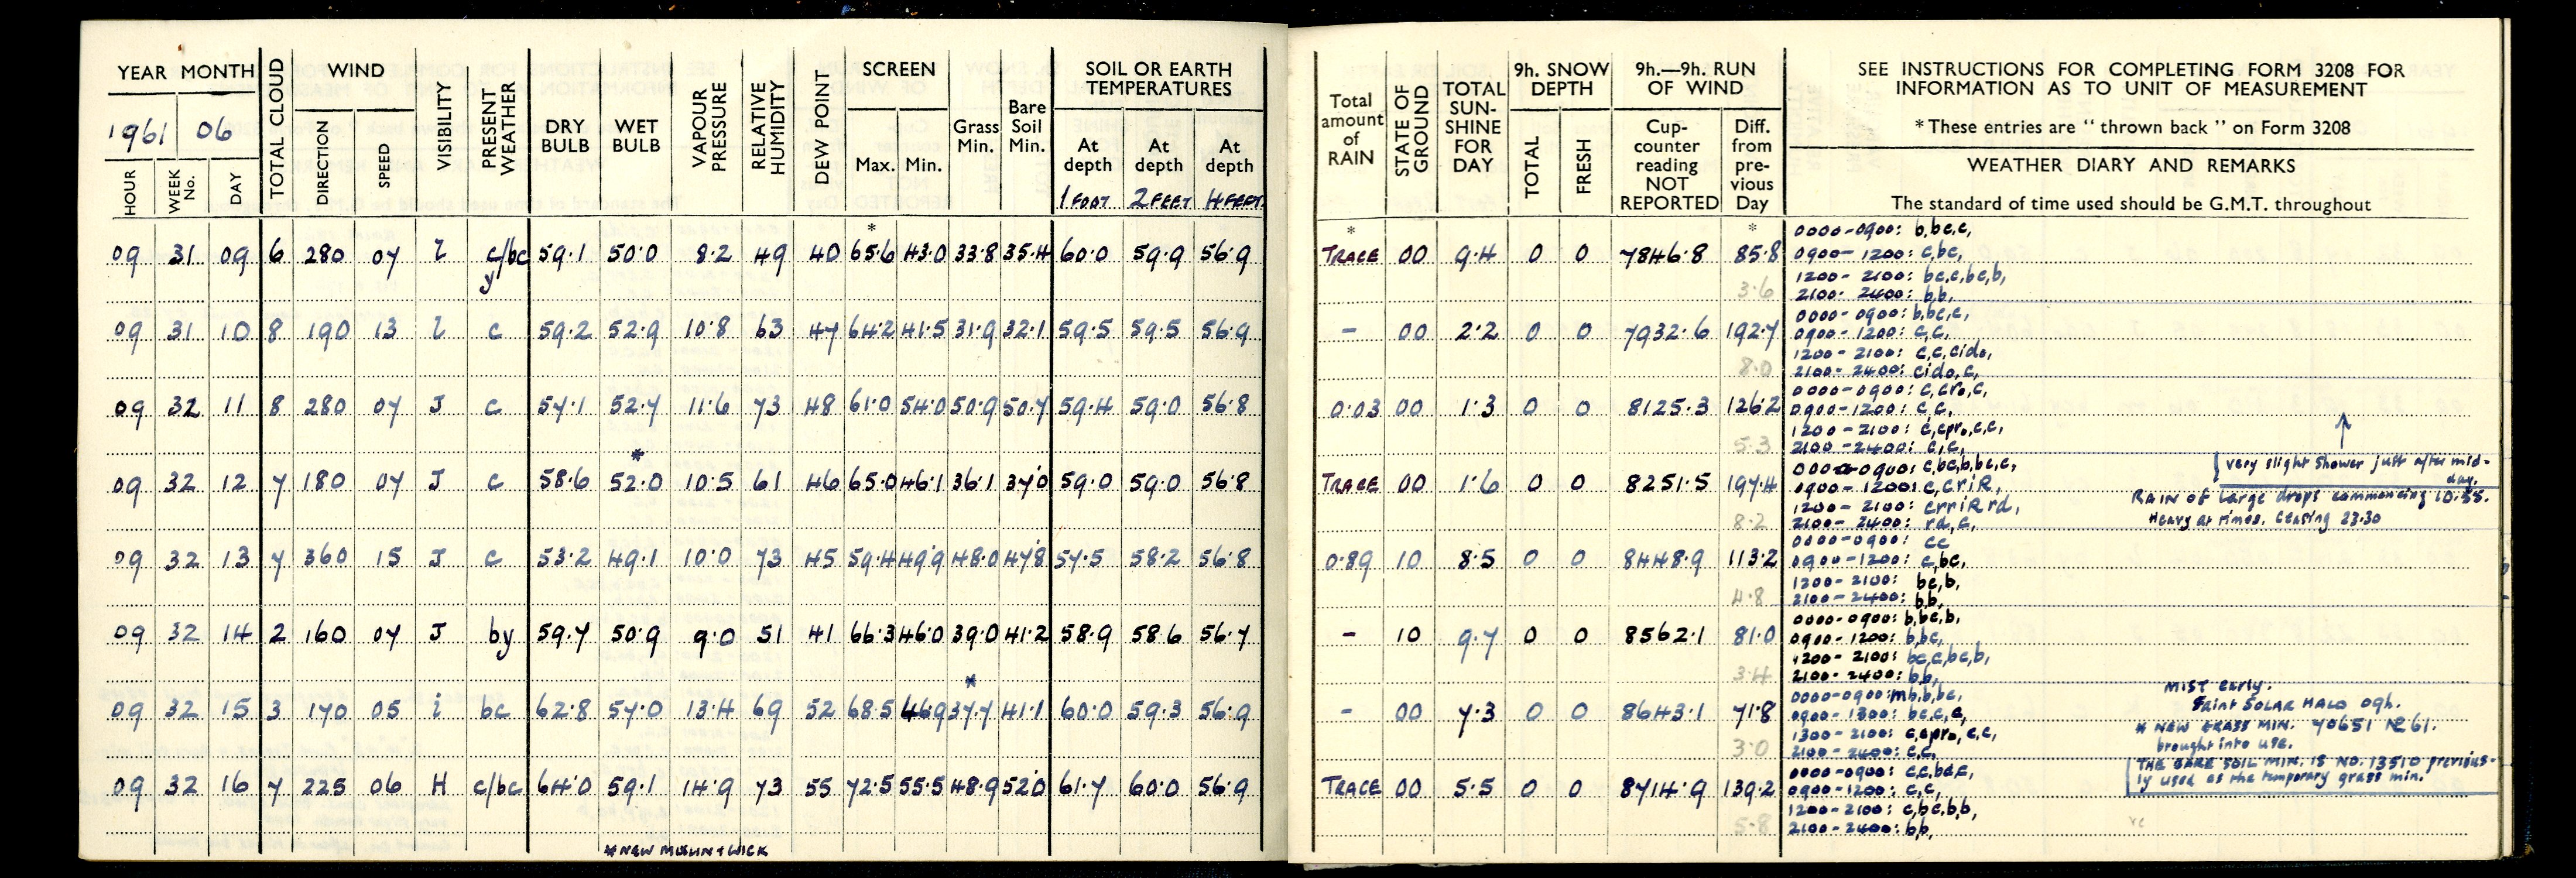 YEAR MONTH TOTAL CLOUD WIND VISIBILITY PRESENT WEATHER DRY BULB WET BULB VAPOUR PRESSURE RELATIVE HUMIDITY DEW POINT SCREEN Grass Min. Bare Soil Min. SOIL OR EARTH TEMPERATURES
1961 06
HOUR WEEK No. DAY DIRECTION SPEED Max. Min. At depth At depth At depth
1 FOOT 2 FEET 4 FEET
Total amount of RAIN STATE OF GROUND TOTAL SUN-SHINE FOR DAY 9h. SNOW DEPTH 9h.—9h. RUN OF WIND
TOTAL FRESH Cup-counter reading NOT REPORTED Diff. from pre-vious Day
SEE INSTRUCTIONS FOR COMPLETING FORM 3208 FOR
INFORMATION AS TO UNIT OF MEASUREMENT
* These entries are "thrown back" on Form 3208
WEATHER DIARY AND REMARKS
The standard of time used should be G.M.T. throughout
* * *
09 31 09 6 280 07 i c/bc y 59.1 50.0 8.2 49 40 65.6 43.0 33.8 35.4 60.0 59.9 56.9 TRACE 00 9.4 0 0 7846.8 85.8
3.6
0000-0900: b,bc,c,
0900-1200: c,bc,
1200-2100: bc,c,bc,b,
2100-2400: b,b,
09 31 10 8 190 13 i c 59.2 52.9 10.8 63 47 64.2 41.5 31.9 32.1 59.5 59.5 56.9 - 00 2.2 0 0 7932.6 192.7
8.0
0000-0900: b,bc,c,
0900-1200: c,c,
1200-2100: c,c,cido,
2100-2400: cido,c,
09 32 11 8 280 07 J c 57.1 52.7 11.6 73 48 61.0 54.0 50.9 50.7 59.4 59.0 56.8 0.03 00 1.3 0 0 8125.3 126.2
5.3
0000-0900: c,cro,c,
0900-1200: c,c,
1200-2100: c,cpro,c,c,
2100-2400: c,c,
*
09 32 12 7 180 07 J c 58.6 52.0 10.5 61 46 65.0 46.1 36.1 37.0 59.0 59.0 56.8 TRACE 00 1.6 0 0 8251.5 197.4
8.2
0000-0900: c,bc,b,bc,c,
0900-1200: c,criR,
1200-2100: crriRrd,
2100-2400: rd,c,
very slight shower just after mid-
day.
RAIN of large drops commencing 10.55.
Heavy at times. Ceasing 23.30
09 32 13 7 360 15 J c 53.2 49.1 10.0 73 45 59.4 49.9 48.0 47.8 57.5 58.2 56.8 0.89 10 8.5 0 0 8448.9 113.2
4.8
0000-0900: cc
0900-1200: c,bc,
1200-2100: bc,b,
2100-2400: b,b,
09 32 14 2 160 07 J by 59.7 50.9 9.0 51 41 66.3 46.0 39.0 41.2 58.9 58.6 56.7 - 10 9.7 0 0 8562.1 81.0
3.4
0000-0900: b,bc,b,
0900-1200: b,bc,
1200-2100: bc,c,bc,b,
2100-2400: b,b,
*
09 32 15 3 170 05 i bc 62.8 57.0 13.4 69 52 68.5 46.9 37.7 41.1 60.0 59.3 56.9 - 00 7.3 0 0 8643.1 71.8
3.0
0000-0900: mb,b,bc,
0900-1300: bc,c,c,
1300-2100: c,cpro,c,c,
2100-2400: c,c,
MIST early.
Faint SOLAR HALO 09h.
* NEW GRASS MIN. 70651 NR 61.
brought into use.
09 32 16 7 225 06 H c/bc 64.0 59.1 14.9 73 55 72.5 55.5 48.9 52.0 61.7 60.0 56.9 TRACE 00 5.5 0 0 8714.9 139.2
5.8
0000-0900: c,c,bc,c,
0900-1200: c,c,
1200-2100: c,bc,b,b,
2100-2400: b,b,
THE BARE SOIL MIN. IS NO. 13510 previous-
ly used as the temporary grass min.
* NEW MUSLIN + WICK